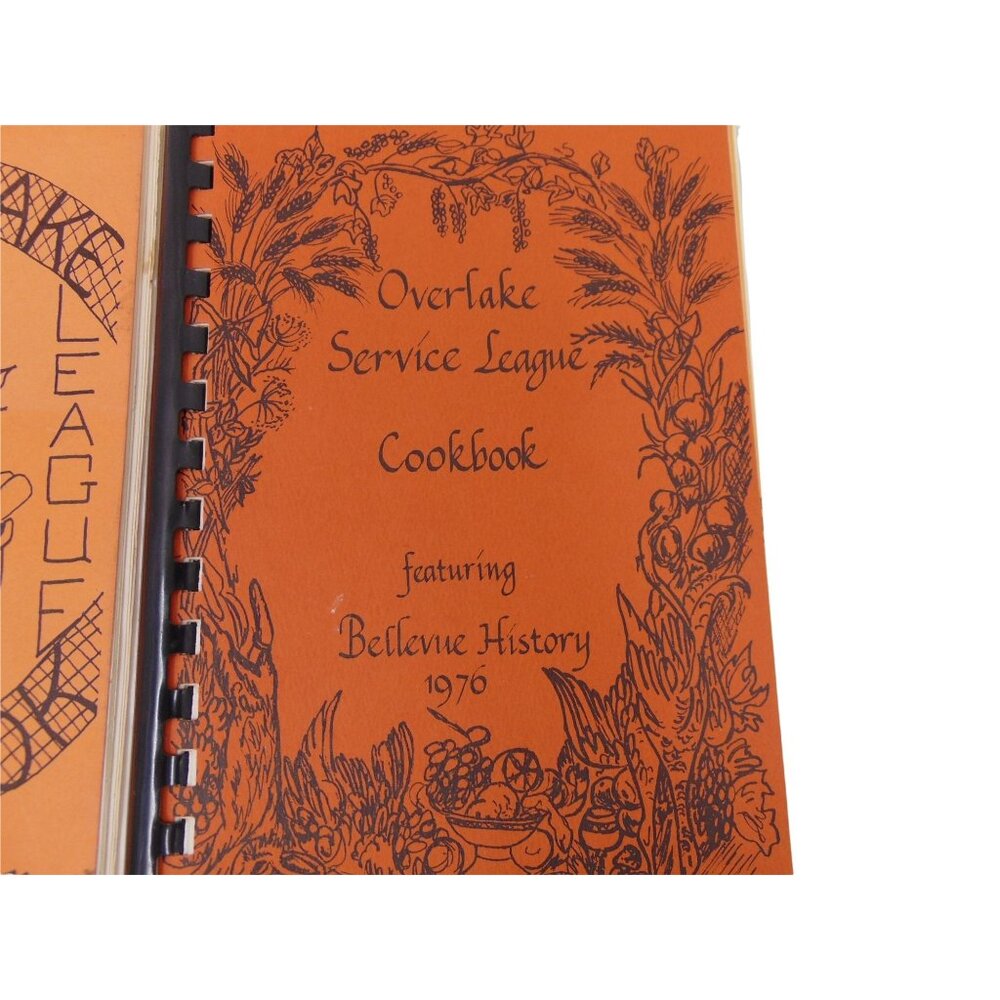 AKE
LEAGUE
OK
Overlake
Service League
Cookbook
featuring
Bellevue History
1976